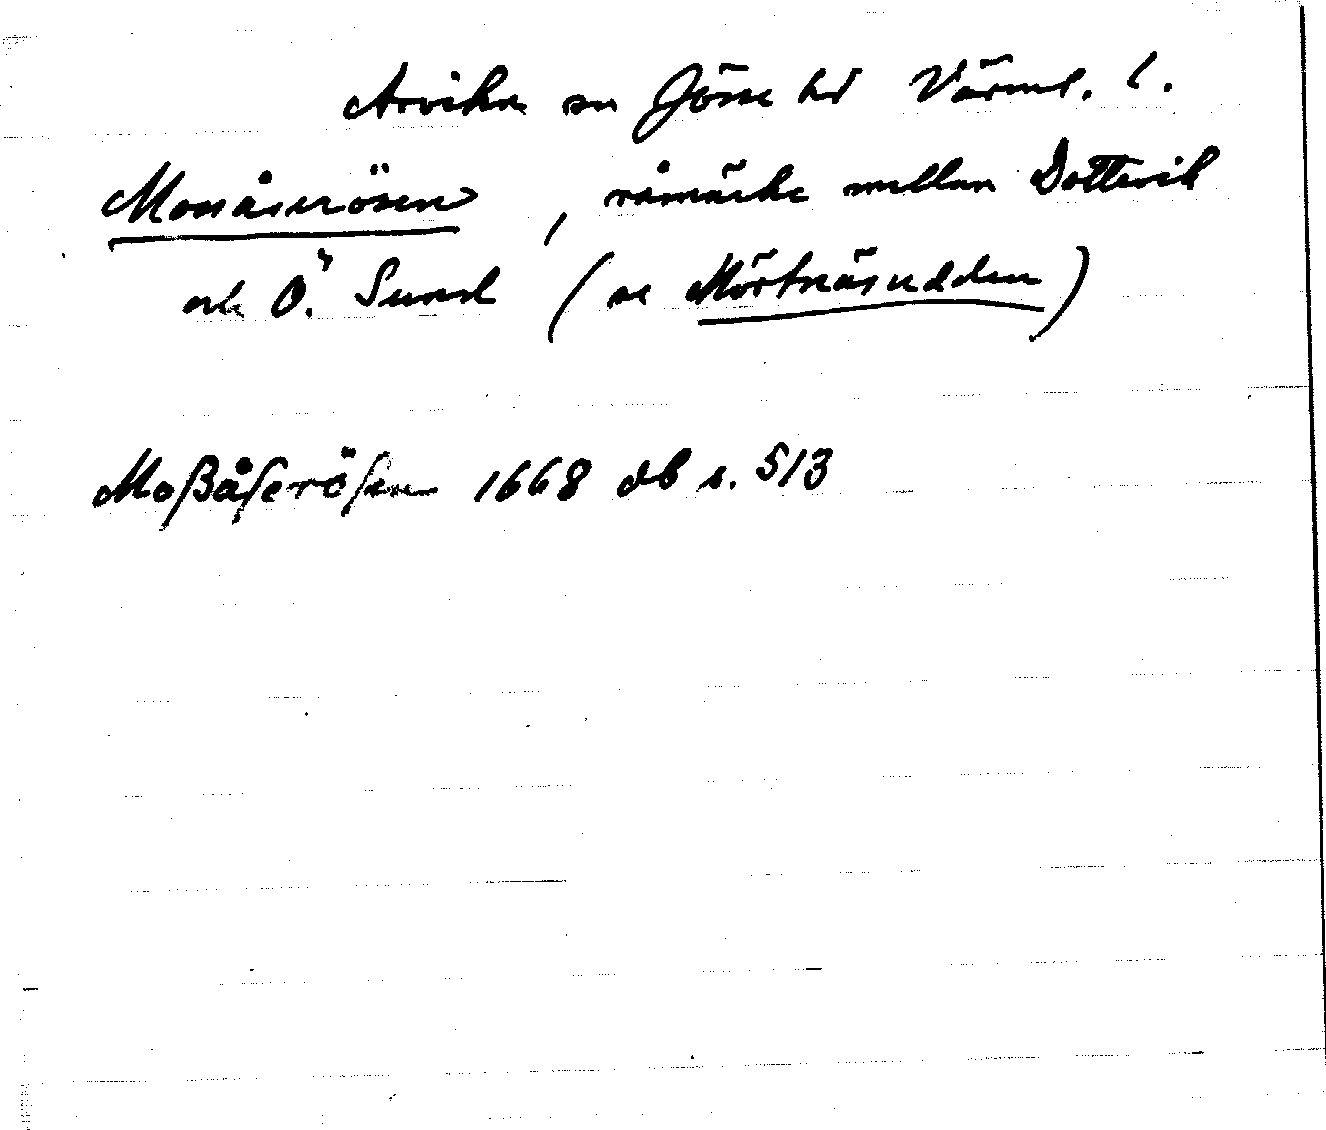 Arvika sn Jösse hd Värml. l.
Mossåserösen, råmärke mellan Dottevik
och Ö. Sund (se Mörtnäsudden)
Moßåſeröſen 1668 db s. 513